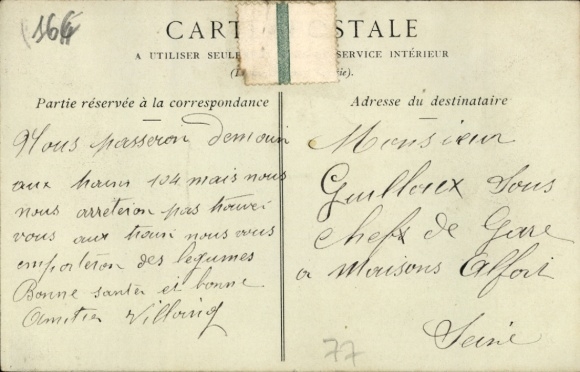 166
CART STALE
A UTILISER SEULE SERVICE INTÉRIEUR
Partie réservée à la correspondance
Nous passeron demain
aux train 104 mais nous
nous arreteron pas trouvé
vous aux train nous vous
emporteron des legumes
Bonne santer et bonne
Amitier Villoing
Adresse du destinataire
Monsieur
Guilloux Sous
Chefs de Gare
a Maisons Alfort
Seine
77